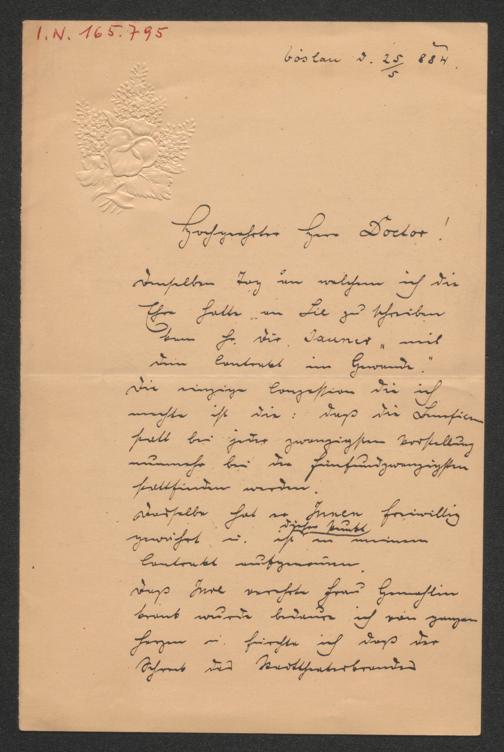 I.N. 165.795
Vöslau d. 25/5 884.
Hochgeehrter Herr Doctor!
Denselben Tag an welchem ich die
Ehre hatte an Sie zu schreiben
kam H. Dir. Jauner "mit
dem Contrakt im Gewande."
Die einzige Conzession die ich
machte ist die: daß die Benficen
statt bei jeder zwanzigsten Vorstellung
nunmehr bei der fünfundzwanzigsten
stattfinden werden.
Dasselbe hat er Ihnen freiwillig
gewährt u. ist dieser Punkt in meinem
Contrakt aufgenommen.
Daß Ihre verehrte Frau Gemahlin
krank wurde bedaure ich von ganzem
Herzen u. fürchte ich daß der
Schreck des Stadttheaterbrandes